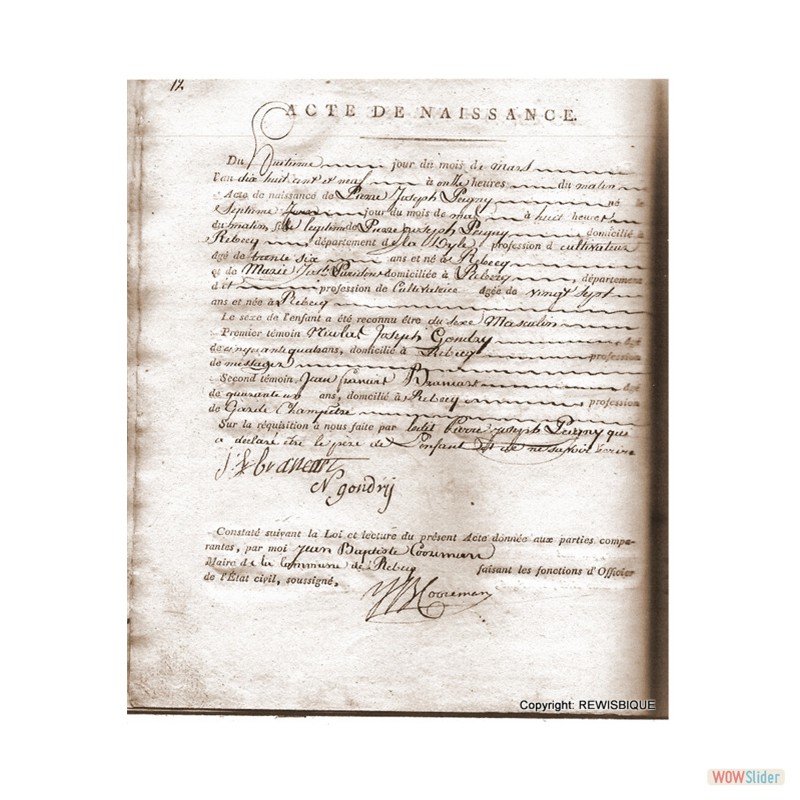 12
ACTE DE NAISSANCE.
Du huitieme jour du mois de mars
l'an dix huit cent et neuf à onze heures du matin
Acte de naissance de Pierre Joseph Peigny né le
Septieme jour du mois de mars à huit heures
du matin fils legitime de Pierre Joseph Peigny domicilié à
Rebecq département de la Dyle profession d cultivateur
âgé de trente six ans et né à Rebecq
et de Marie domiciliée à Rebecq, département
dit profession de Cultivatrice âgée de vingt sept
ans et née à Rebecq
Le sexe de l'enfant a été reconnu être du sexe Masculin
Premier témoin Nicolas Joseph Gondry âgé
de cinquante quatre ans, domicilié à Rebecq profession
de messager
Second témoin, Jean Brancart âgé
de quarante un ans, domicilié à Rebecq profession
de Garde Champêtre
Sur la réquisition à nous faite par ledit Pierre Joseph Peigny que
a declaré être le père de l'enfant et de ne savoir ecrire
brancart
N gondrÿ
Constaté suivant la Loi et lecture du présent Acte donnée aux parties compa-
rantes, par moi Jean Baptiste Cooreman
Maire de la Commune de Rebecq faisant les fonctions d'Officier
de l'État civil, soussigné,
JB Cooreman
Copyright: REWISBIQUE
WOWSlider